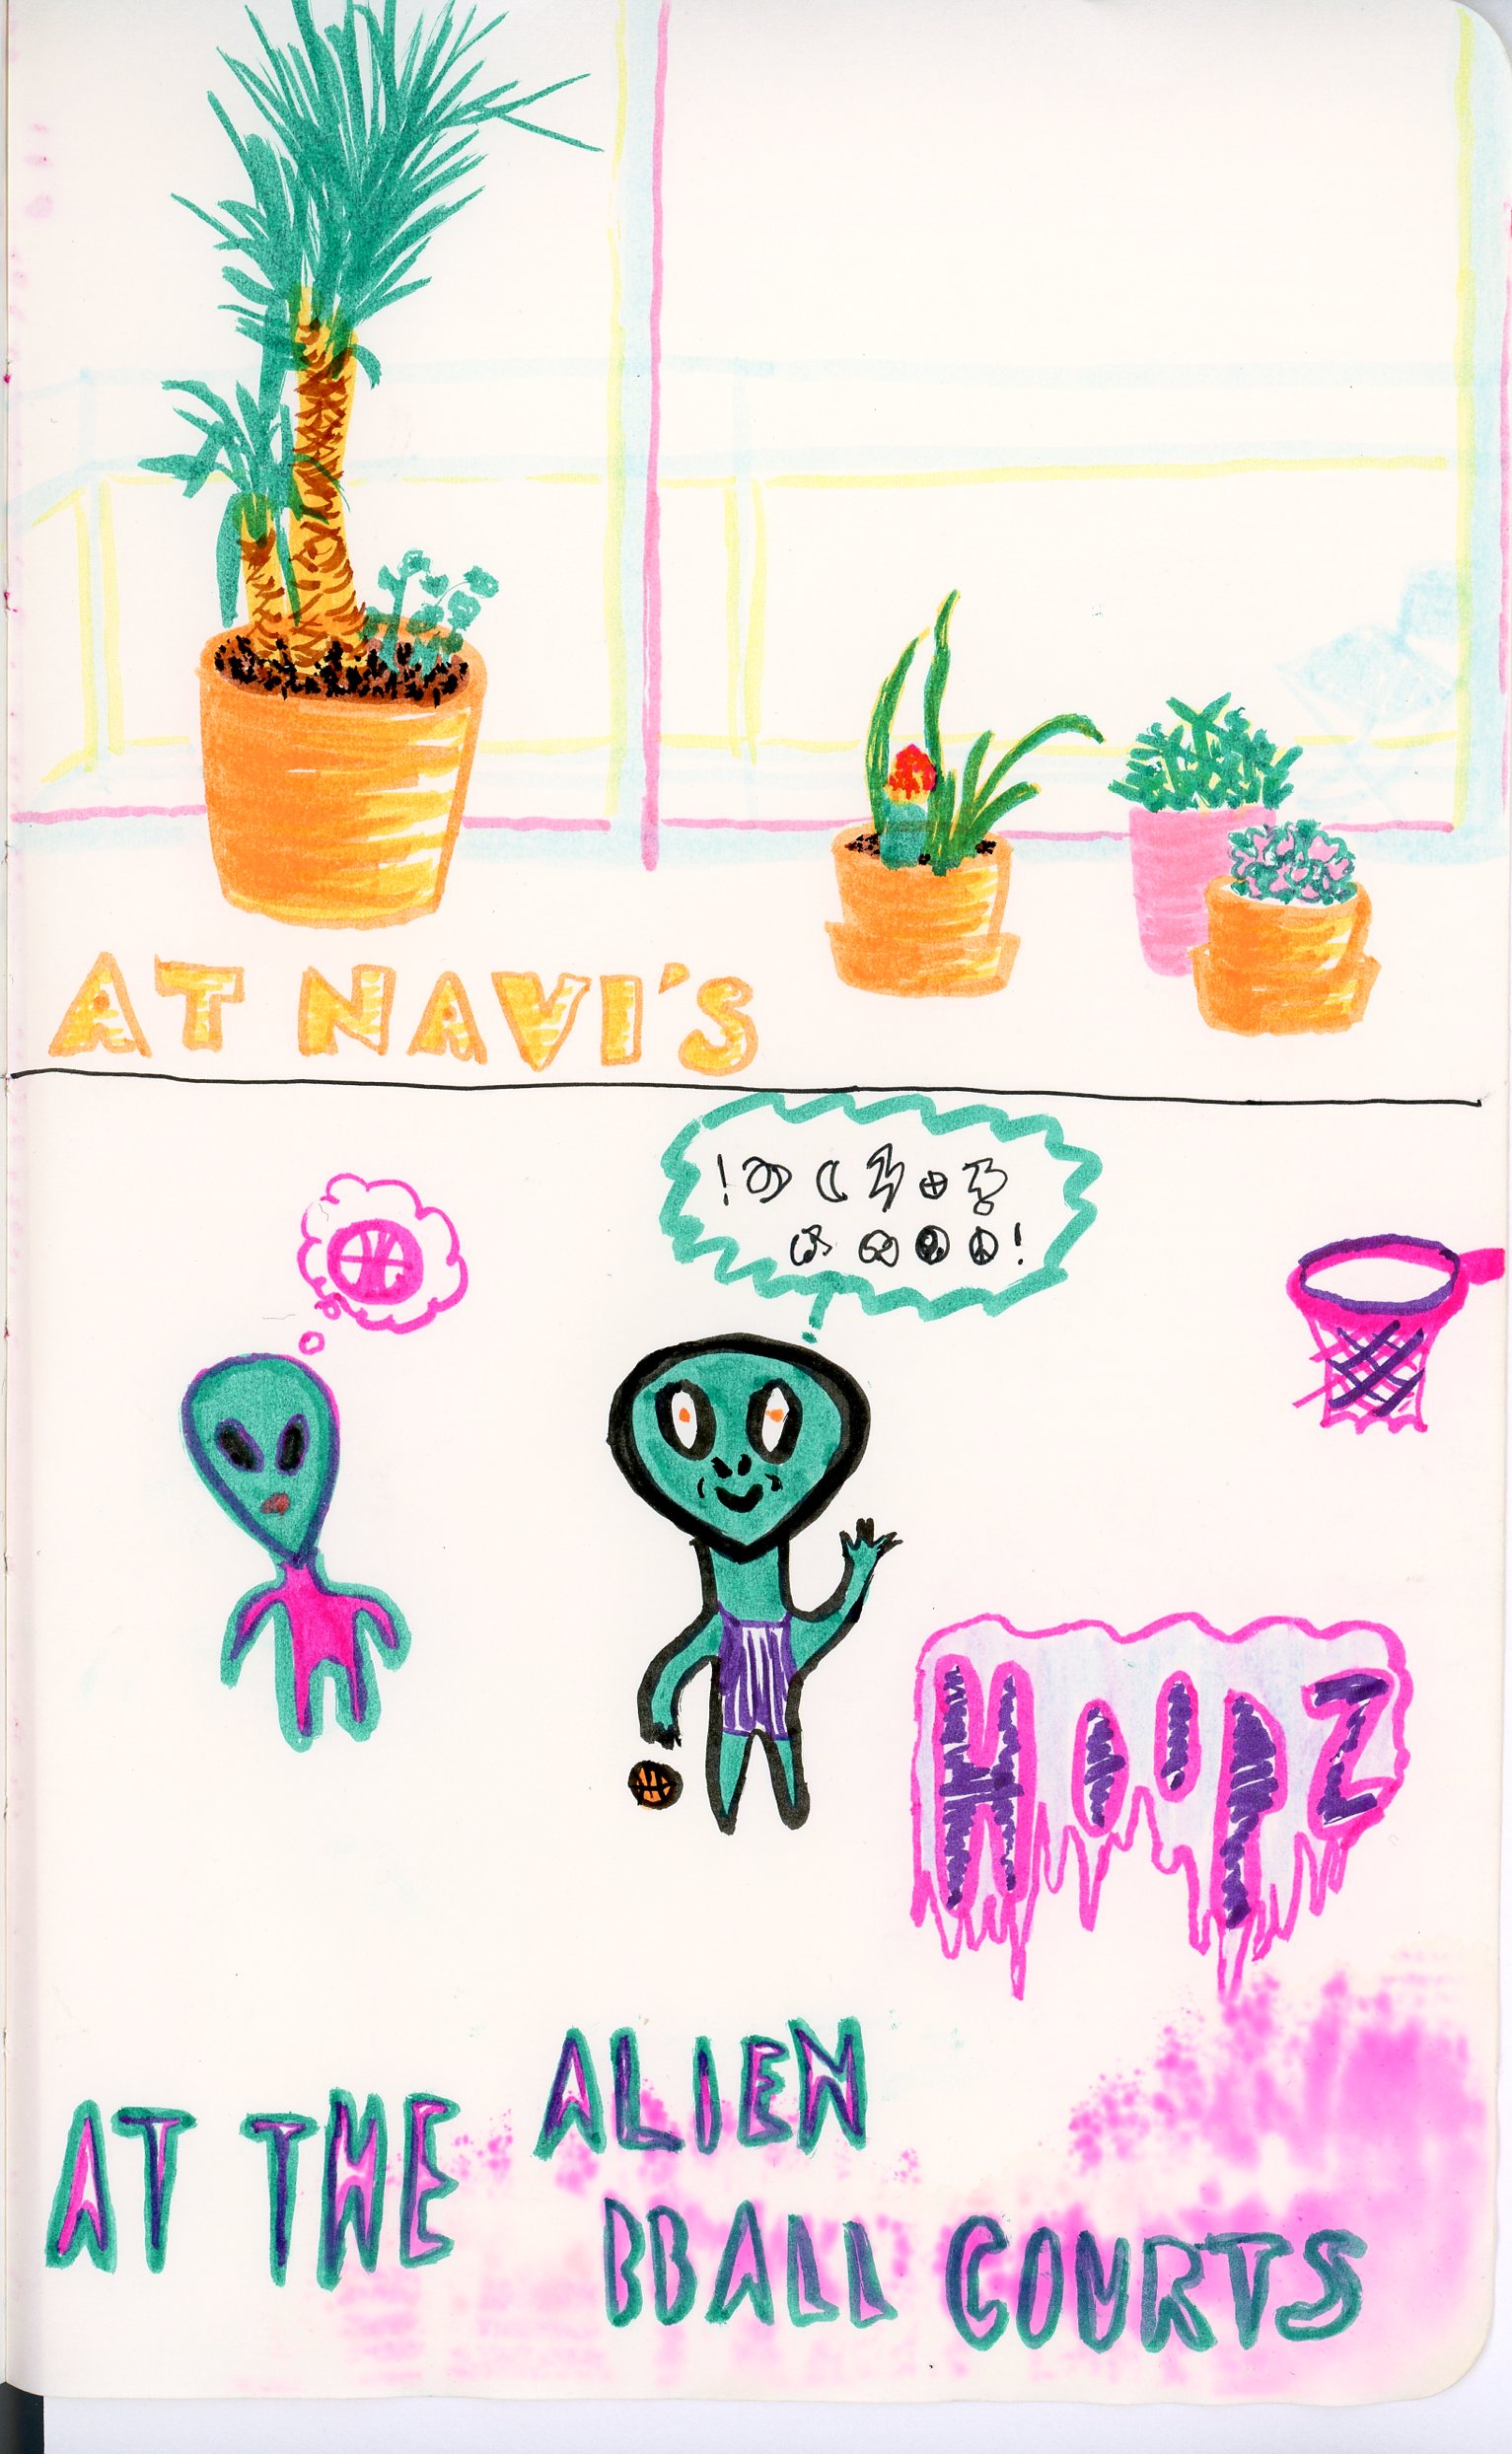 AT NAVI'S
HOOPZ
AT THE ALIEN
BBALL COURTS